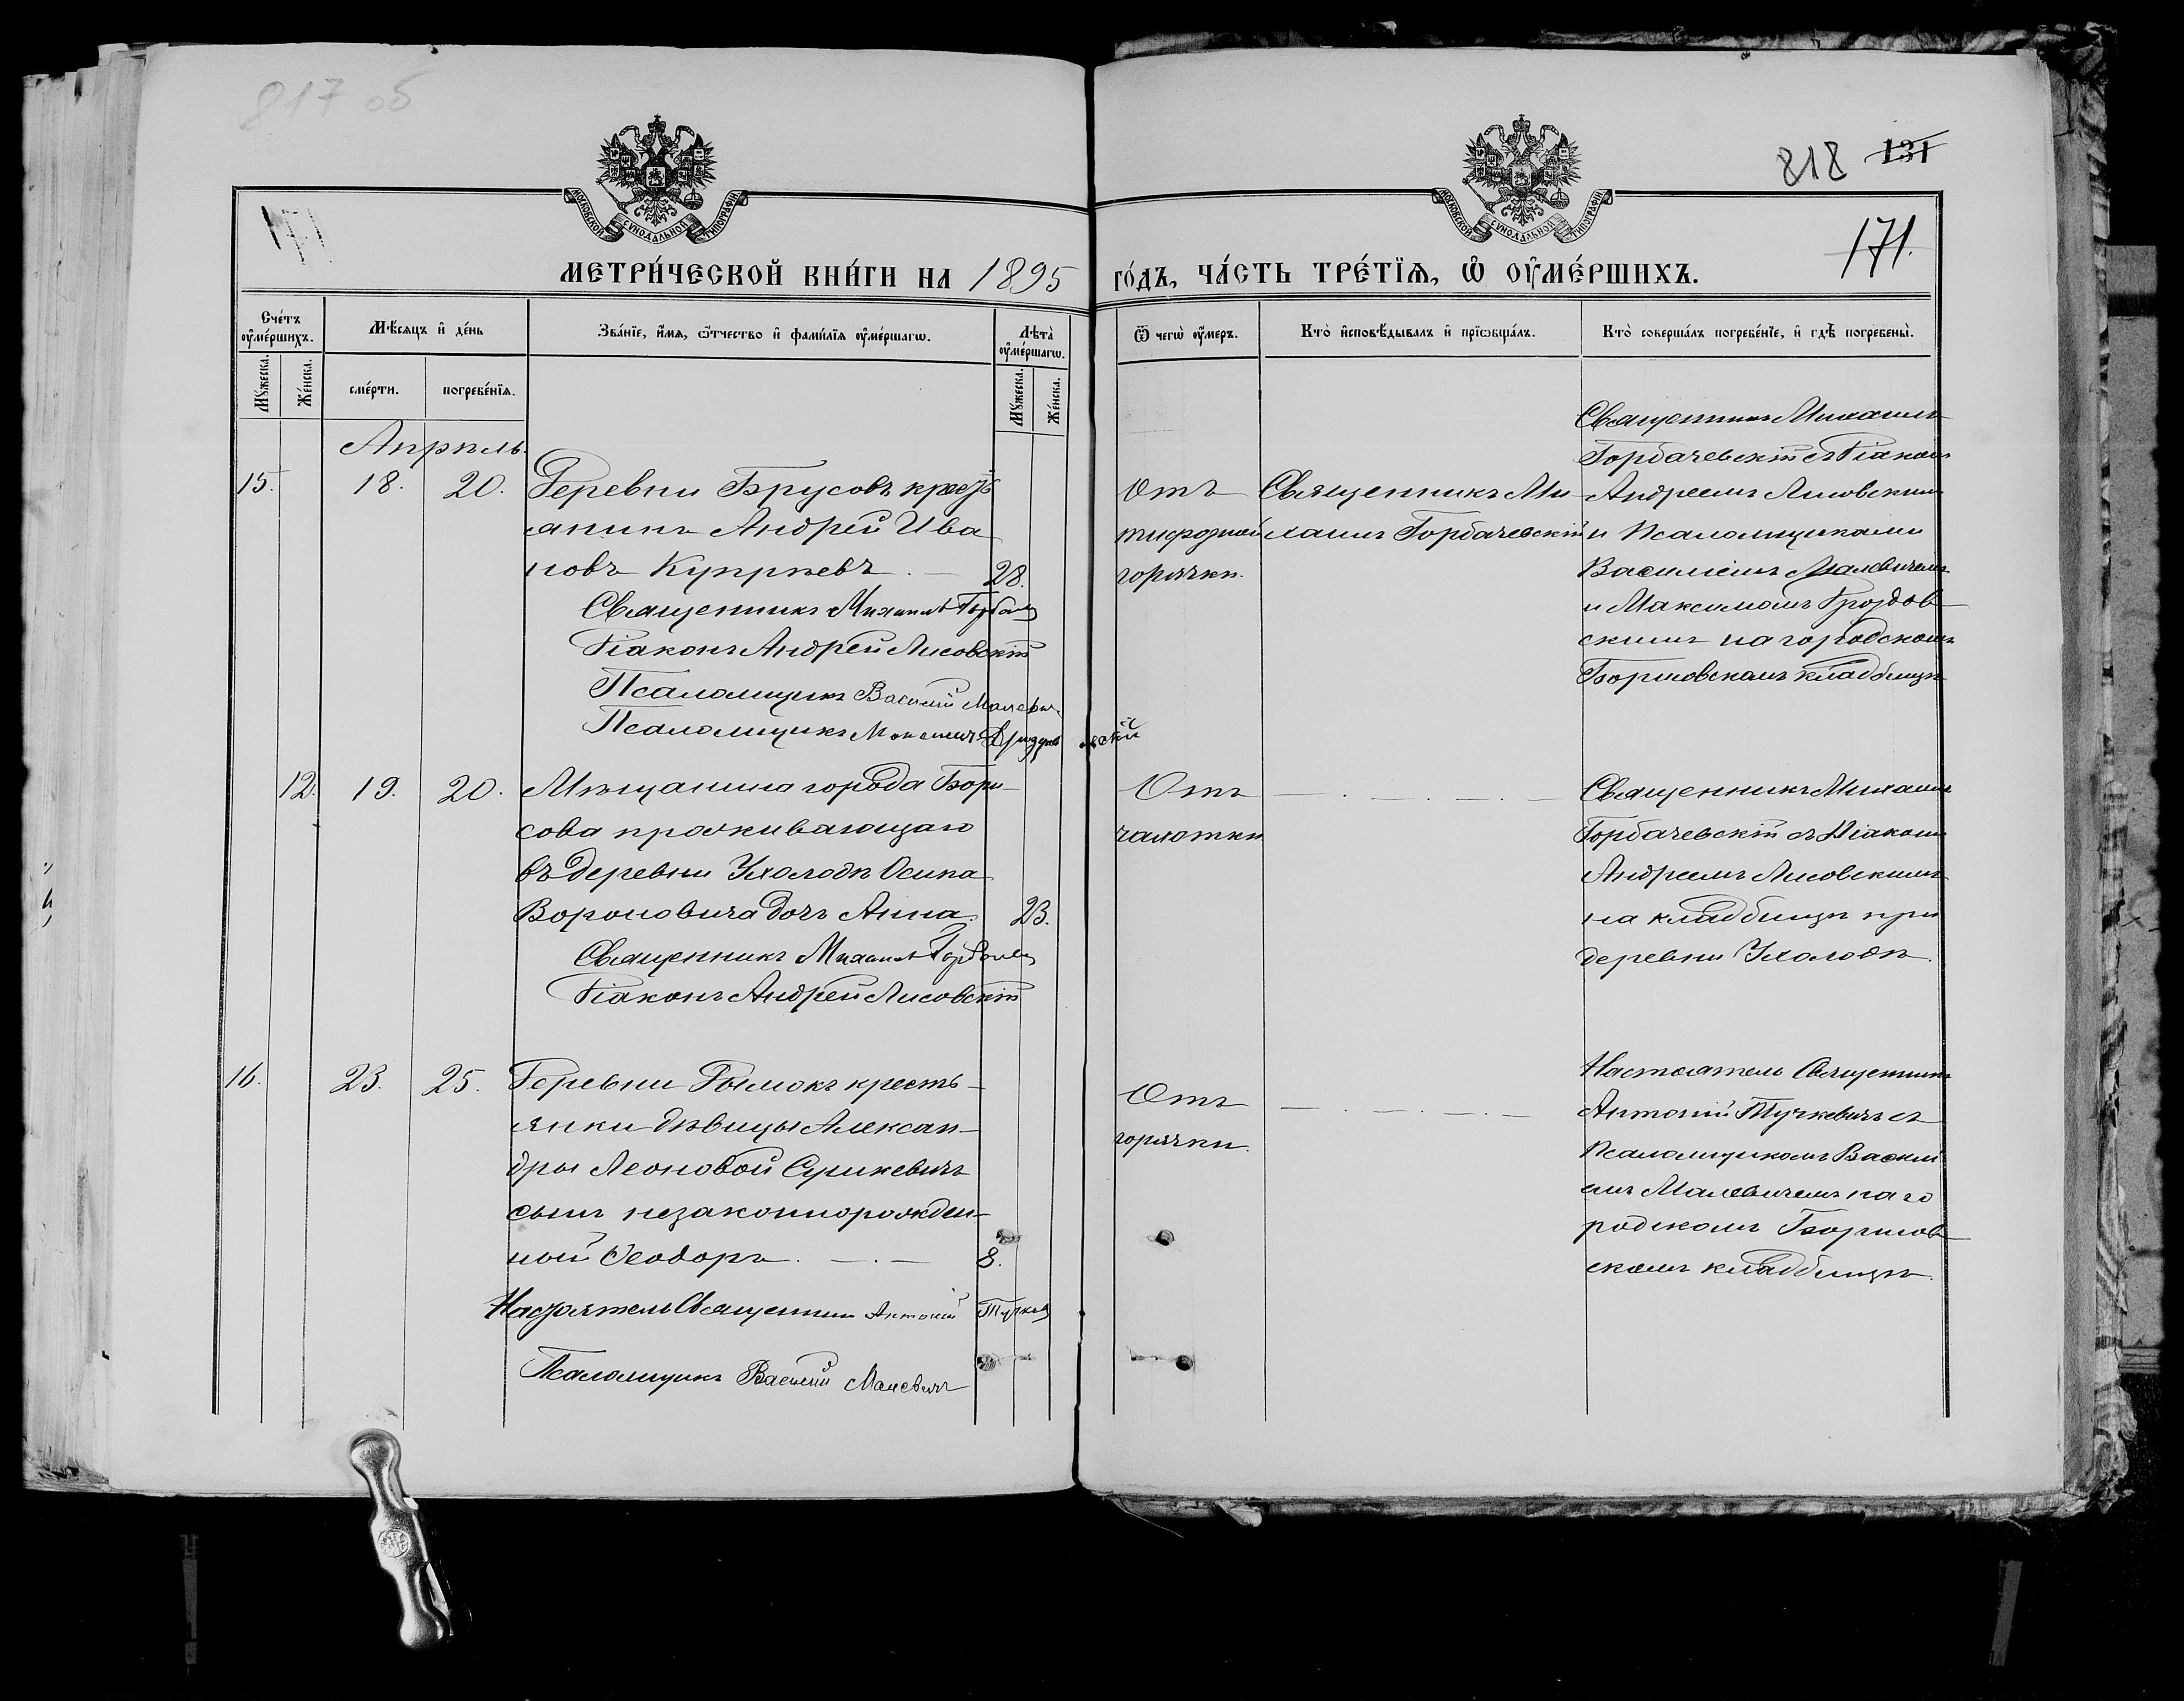 817 об
818 131
171.
МОСКОВСКОЙ СУНОДАЛЬНОЙ ТИПОГРАФІИ
МОСКОВСКОЙ СУНОДАЛЬНОЙ ТИПОГРАФІИ
МЕТРИ́ЧЕСКОЙ КНИ́ГИ НА 1895 ГО́ДЪ, ЧА́СТЬ ТРЕ́ТІѦ, Ѡ҆ ОУ҆МЕ́РШИХЪ.
Сче́тъ оу҆ме́ршихъ.
Мꙋ́жеска.
Же́нска.
Мѣ́сяцъ и҆ де́нь
сме́рти.
погребе́нїѧ.
Зва́нїе, и҆́мѧ, ѻ҆́тчество и҆ фами́лїѧ оу҆ме́ршагѡ.
Лѣ́та оу҆ме́ршагѡ.
Мꙋ́жеска.
Же́нска.
Ѿ чегѡ̀ оу҆́меръ.
Кто̀ и҆сповѣ́дывалъ и҆ прїѻбща́лъ.
Кто̀ соверша́лъ погребе́нїе, и҆ гдѣ̀ погребены̀.
Апрѣль.
15. 18. 20. Деревни Брусовъ кресть
янинъ Андрей Ива
новъ Купрѣевъ. — 28.
Священникъ Михаилъ Горбачев
Діаконъ Андрей Лисовскій
Псаломщикъ Василій Малевич
Псаломщикъ Максимъ
Отъ
тифозной
горячки.
Священникъ Ми-
хаилъ Горбачевскій
Священникъ Михаилъ
Горбачевскій съ Діаконом
Андреемъ Лисовскимъ
и Псаломщиками
Василіемъ Малевичемъ
и Максимомъ Дроздов
скимъ на городскомъ
Борисовскомъ кладбищѣ
12. 19. 20. Мѣщанина города Бори-
сова проживающаго
въ деревни Ухолодѣ Осипа
Вороновича дочь Анна. 23.
Священникъ Михаилъ Горбачев
Діаконъ Андрей Лисовскій
Отъ
чахотки
— . — . — . —
Священникъ Михаилъ
Горбачевскій съ Діаконом
Андреемъ Лисовскимъ
на кладбищѣ при
деревни Ухолодѣ.
16. 23. 25. Деревни Дымокъ кресть-
янки дѣвицы Алексан-
дры Леоновой
сынъ незаконнорожден-
ной Ѳеодоръ. — . — 8.
Настоятель Священникъ Антоній Тучкев
Псаломщикъ Василій Малевичъ
Отъ
горячки.
— . — . — . —
Настоятель Священникъ
Антоній Тучкевичъ съ
Псаломщикомъ Васили
емъ Малевичемъ на го
родскомъ Борисов-
скомъ кладбищѣ.